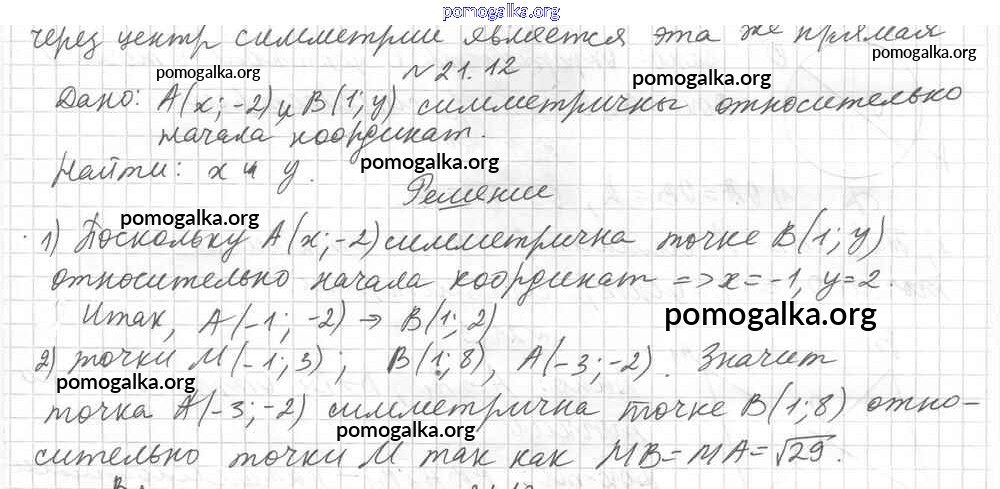 pomogalka.org
через центр симметрии является эта же прямая
pomogalka.org
№21.12
pomogalka.org
Дано: A(x; -2) и B(1; y) симметричны относительно
начала координат.
pomogalka.org
Найти: x и y.
Решение
pomogalka.org
1) Поскольку A(x; -2) симметрична точке B(1; y)
относительно начала координат => x = -1, y = 2.
Итак, A(-1; -2) → B(1; 2)
pomogalka.org
2) точки M(-1; 3); B(1; 8), A(-3; -2). Значит
pomogalka.org
точка A(-3; -2) симметрична точке B(1; 8) отно-
pomogalka.org
сительно точки M. так как MB = MA = √29.